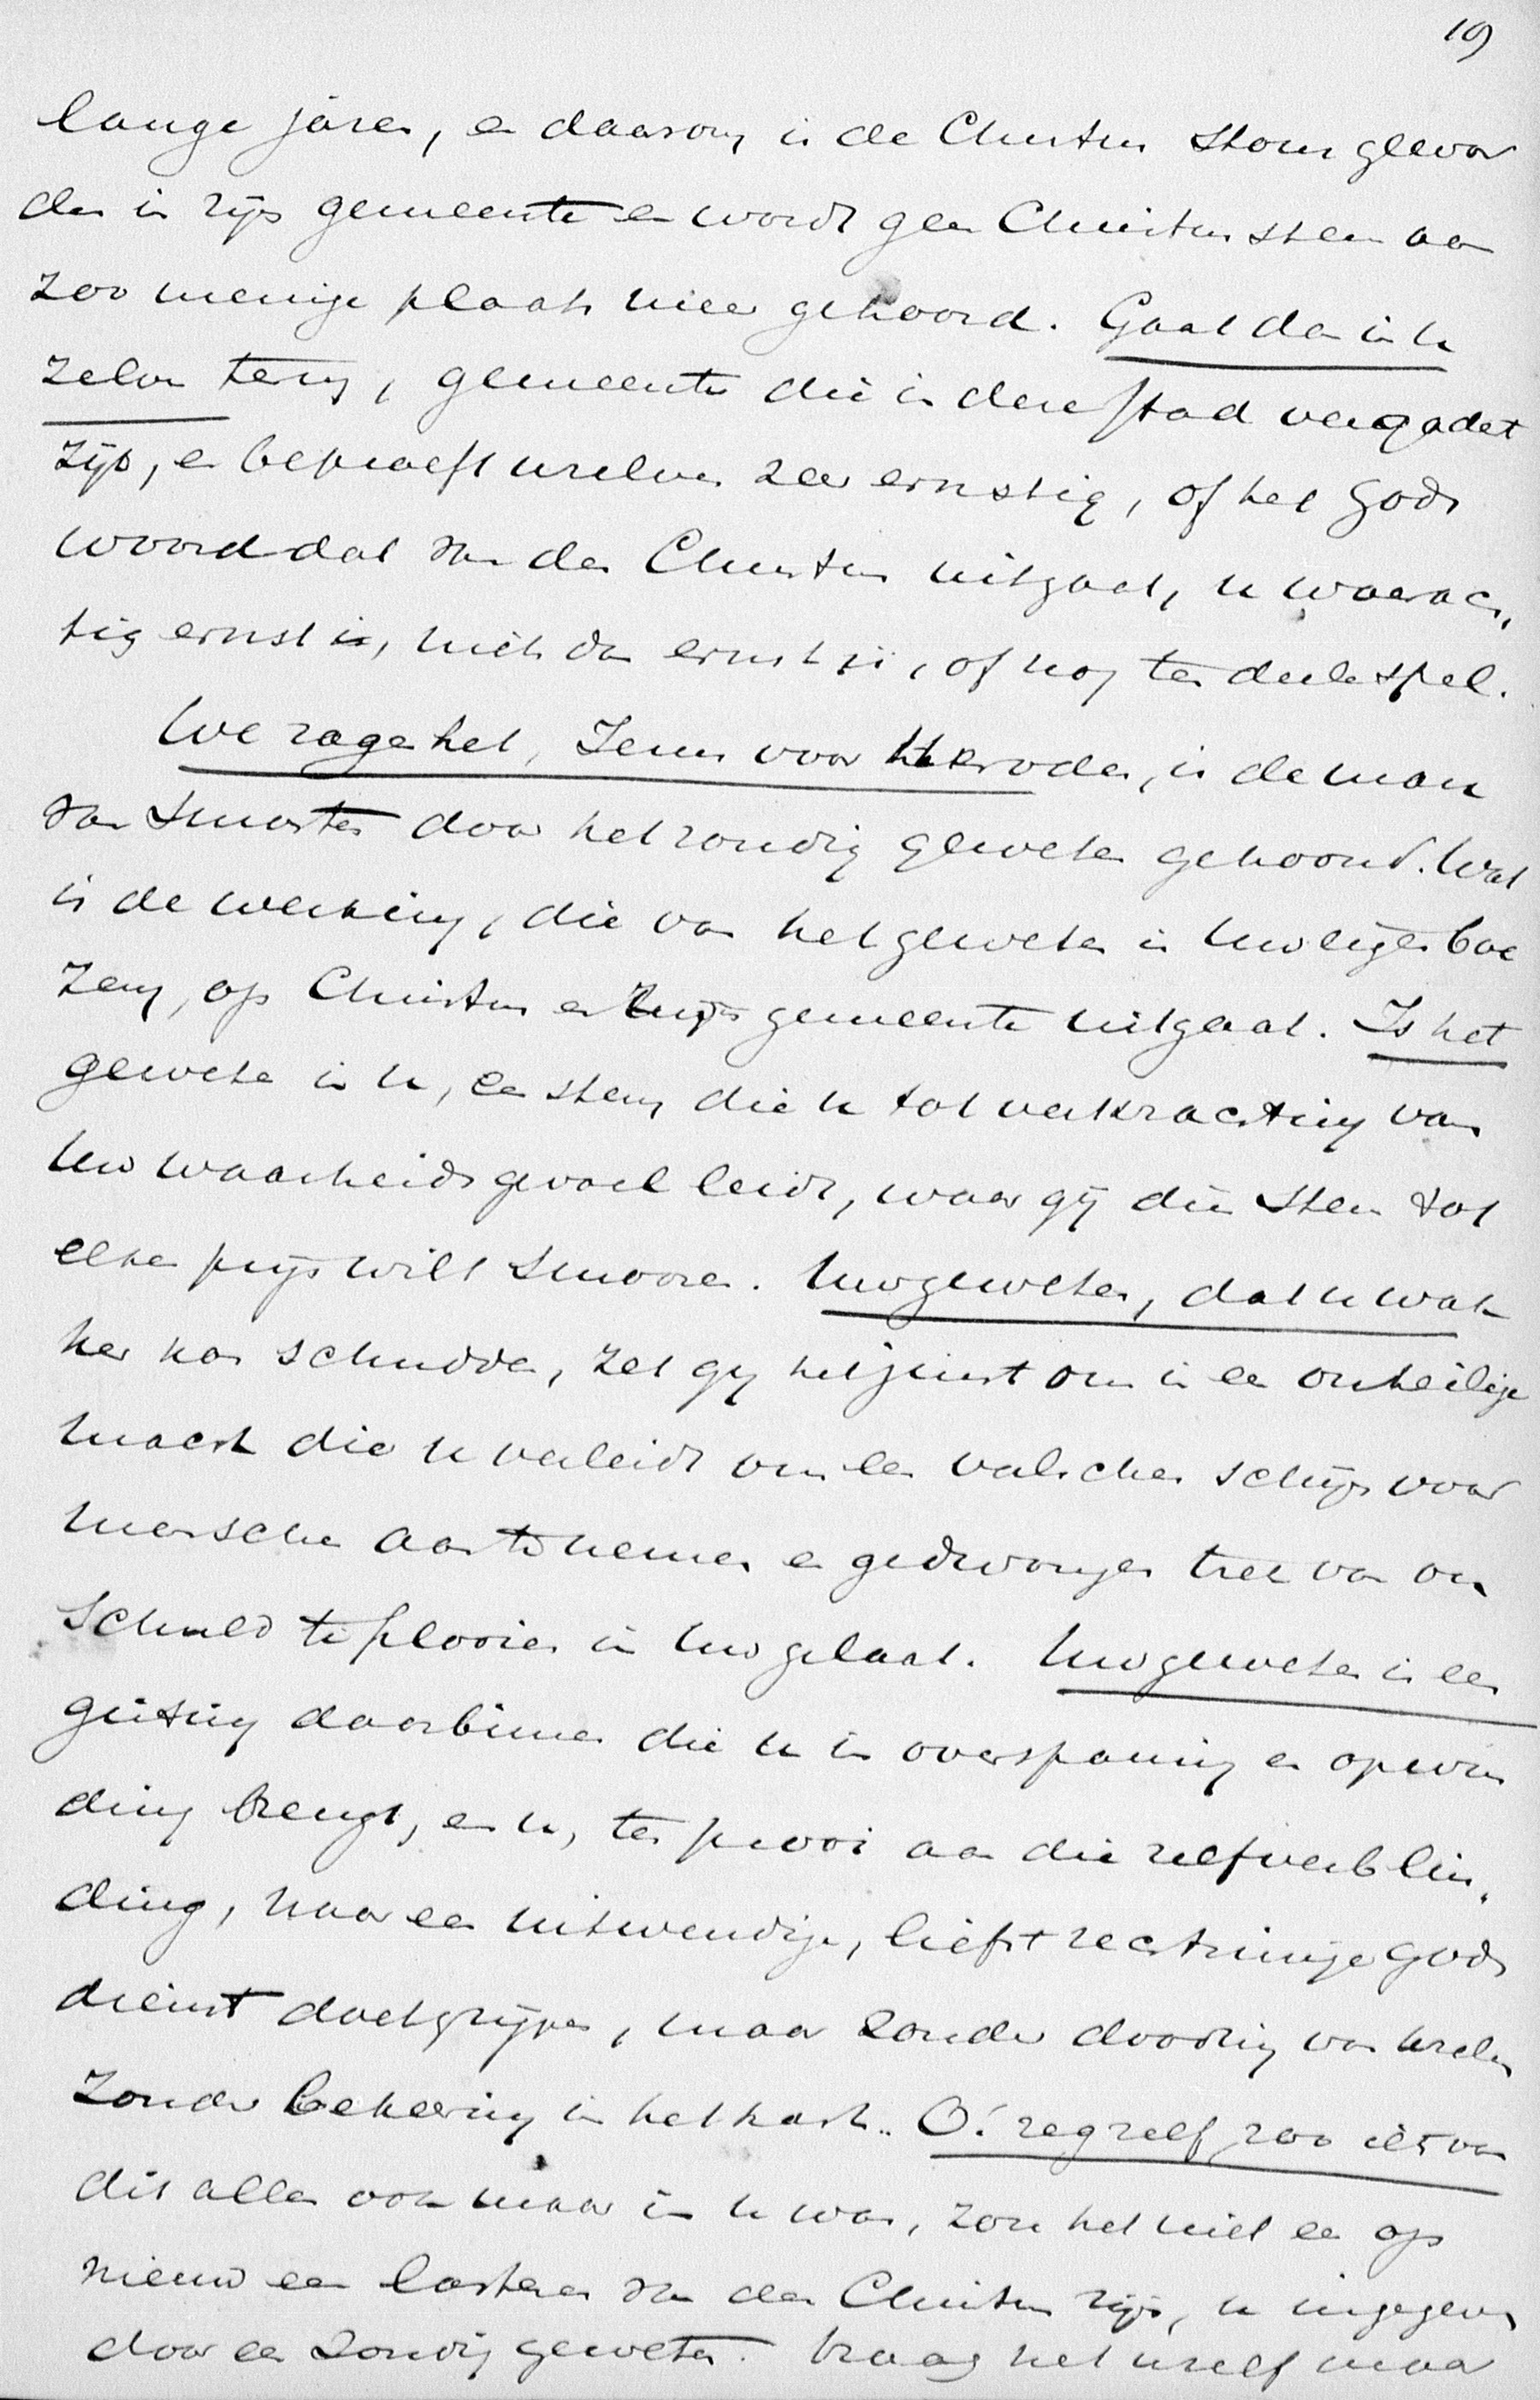 19
lange jaren, en daarom is de Christus stom gewor
den in zijn gemeente en wordt geen Christusstem aan
zoo menige plaats meer gehoord. Gaat dan in u
zelven terug, gemeente die in deze stad vergadert
zijt, en beproeft uzelven zeer ernstig, of het Gods
woord dat van den Christus uitgaat, u waarach„
tig ernst is, niets dan ernst is, of nog ten deele spel.
We zagen het, Jezus voor Herodes, is de man
van smarten door het zondig geweten gehoond. Wat
is de werking, die van het geweten in uw eigen boe
zem, op Christus en zijn gemeente uitgaat. Is het
geweten in u, een stem die u tot verkrachting van
uw waarheidsgevoel leidt, waar gij die stem tot
elken prijs wilt smoren. Uw geweten, dat u wak
ker kon schudden, zet gij het juist om in een onheilige
macht die u verleidt om een valschen schijn voor
menschen aan te nemen en gedwongen trek van on
schuld te plooien in uw gelaat. Uw geweten is een
gisting daarbinnen die u in overspanning en opwin
ding brengt, en u, ten prooi aan die zelfverblin„
ding, naar een uitwendige, liefst rechtzinnige Gods
dienst doet grijpen, maar zonder dooding van uzelven
zonder bekeering in het hart.. O! zeg zelf, zoo iets van
dit alles ook maar in u was, zou het niet een op
nieuw een lasteren van den Christus zijn, u ingegeven
door een zondig geweten. Vraag het uzelf maar